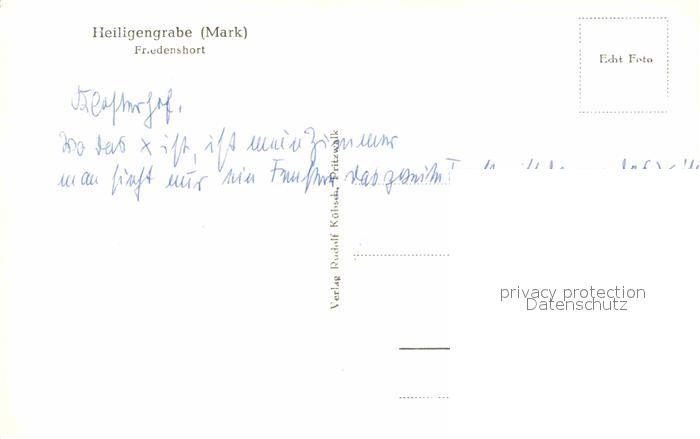 Heiligengrabe (Mark)
Friedenshort
Echt Foto
Klosterhof.
Wo das x ist, ist mein Zimmer
man sieht nur ein Fenster, das zweite
Verlag Rudolf Kübsch, Pritzwalk
privacy protection
Datenschutz